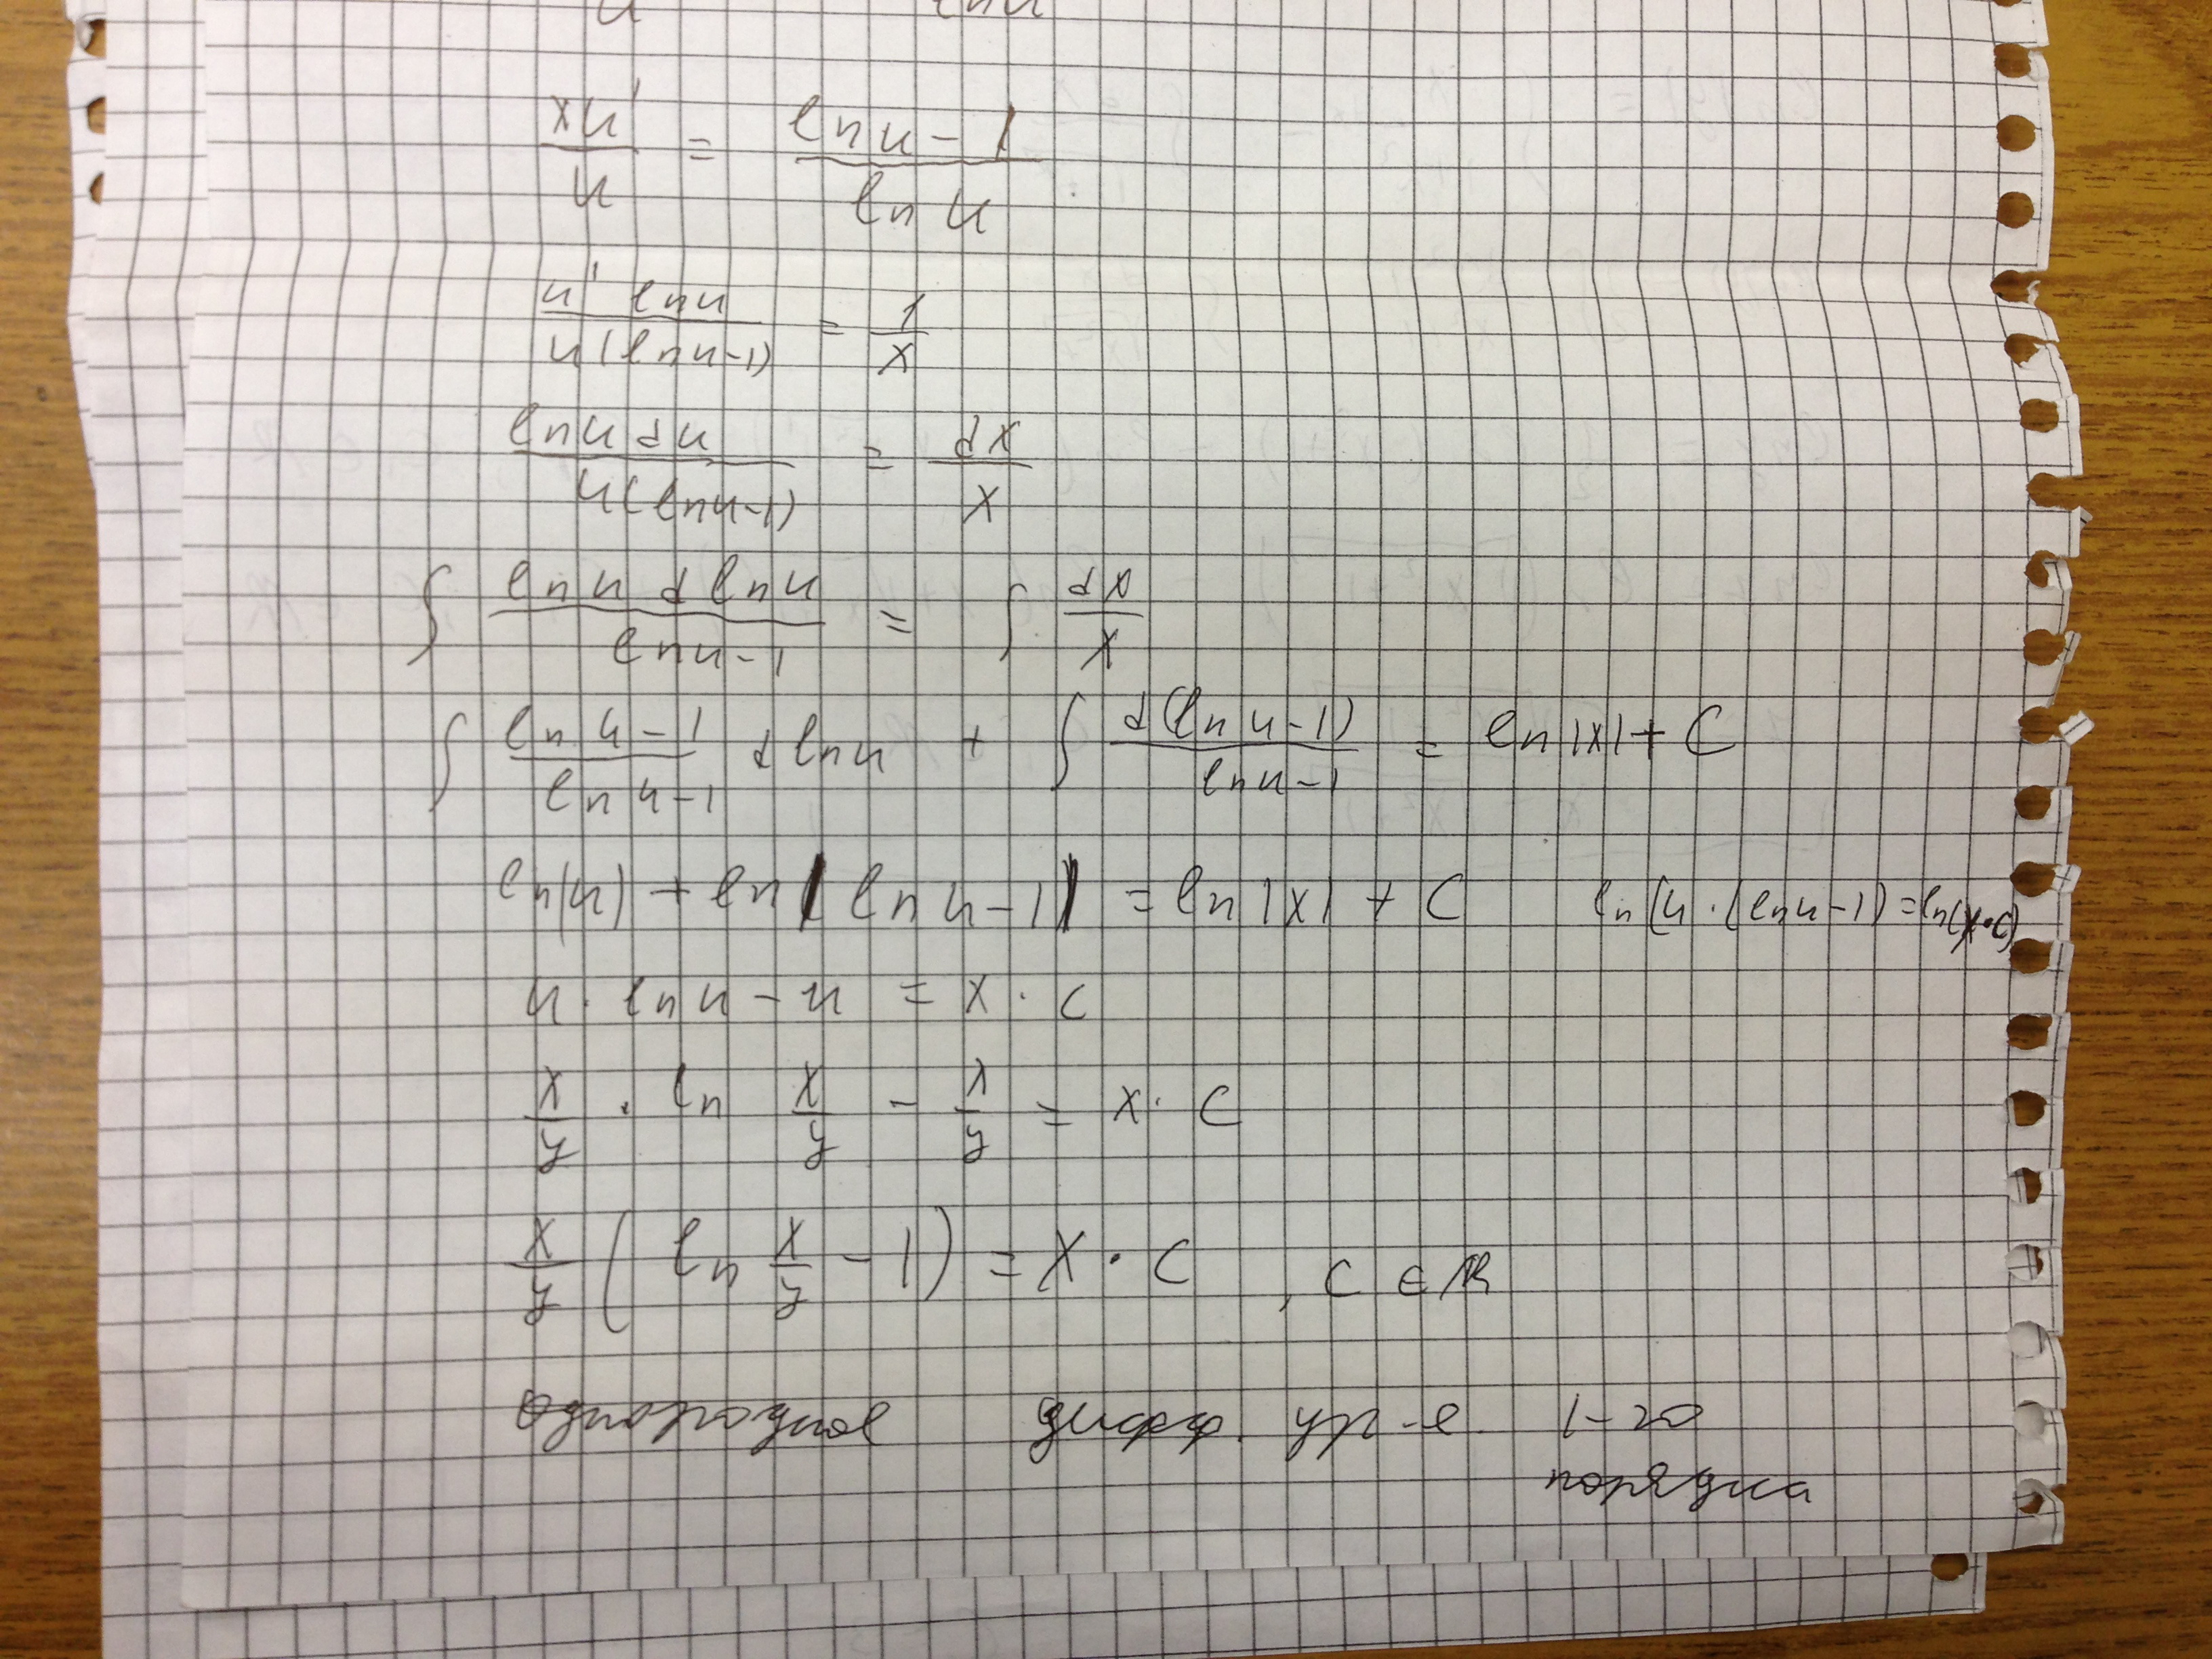 u ln u
xu'/u = (ln u - 1)/ln u
u' ln u/u(ln u-1) = 1/x
ln u du/u(ln u-1) = dx/x
∫ ln u d ln u/(ln u-1) = ∫ dx/x
∫ (ln u-1)/(ln u-1) d ln u + ∫ d(ln u-1)/(ln u-1) = ln|x| + C
ln|u| + ln|ln u-1| = ln|x| + C ln(u·(ln u-1) = ln(x·C)
u · ln u - u = x · C
x/y · ln x/y - x/y = x · C
x/y (ln x/y - 1) = x · C , C ∈ ℝ
Однородное дифф. ур-е 1-го
порядка